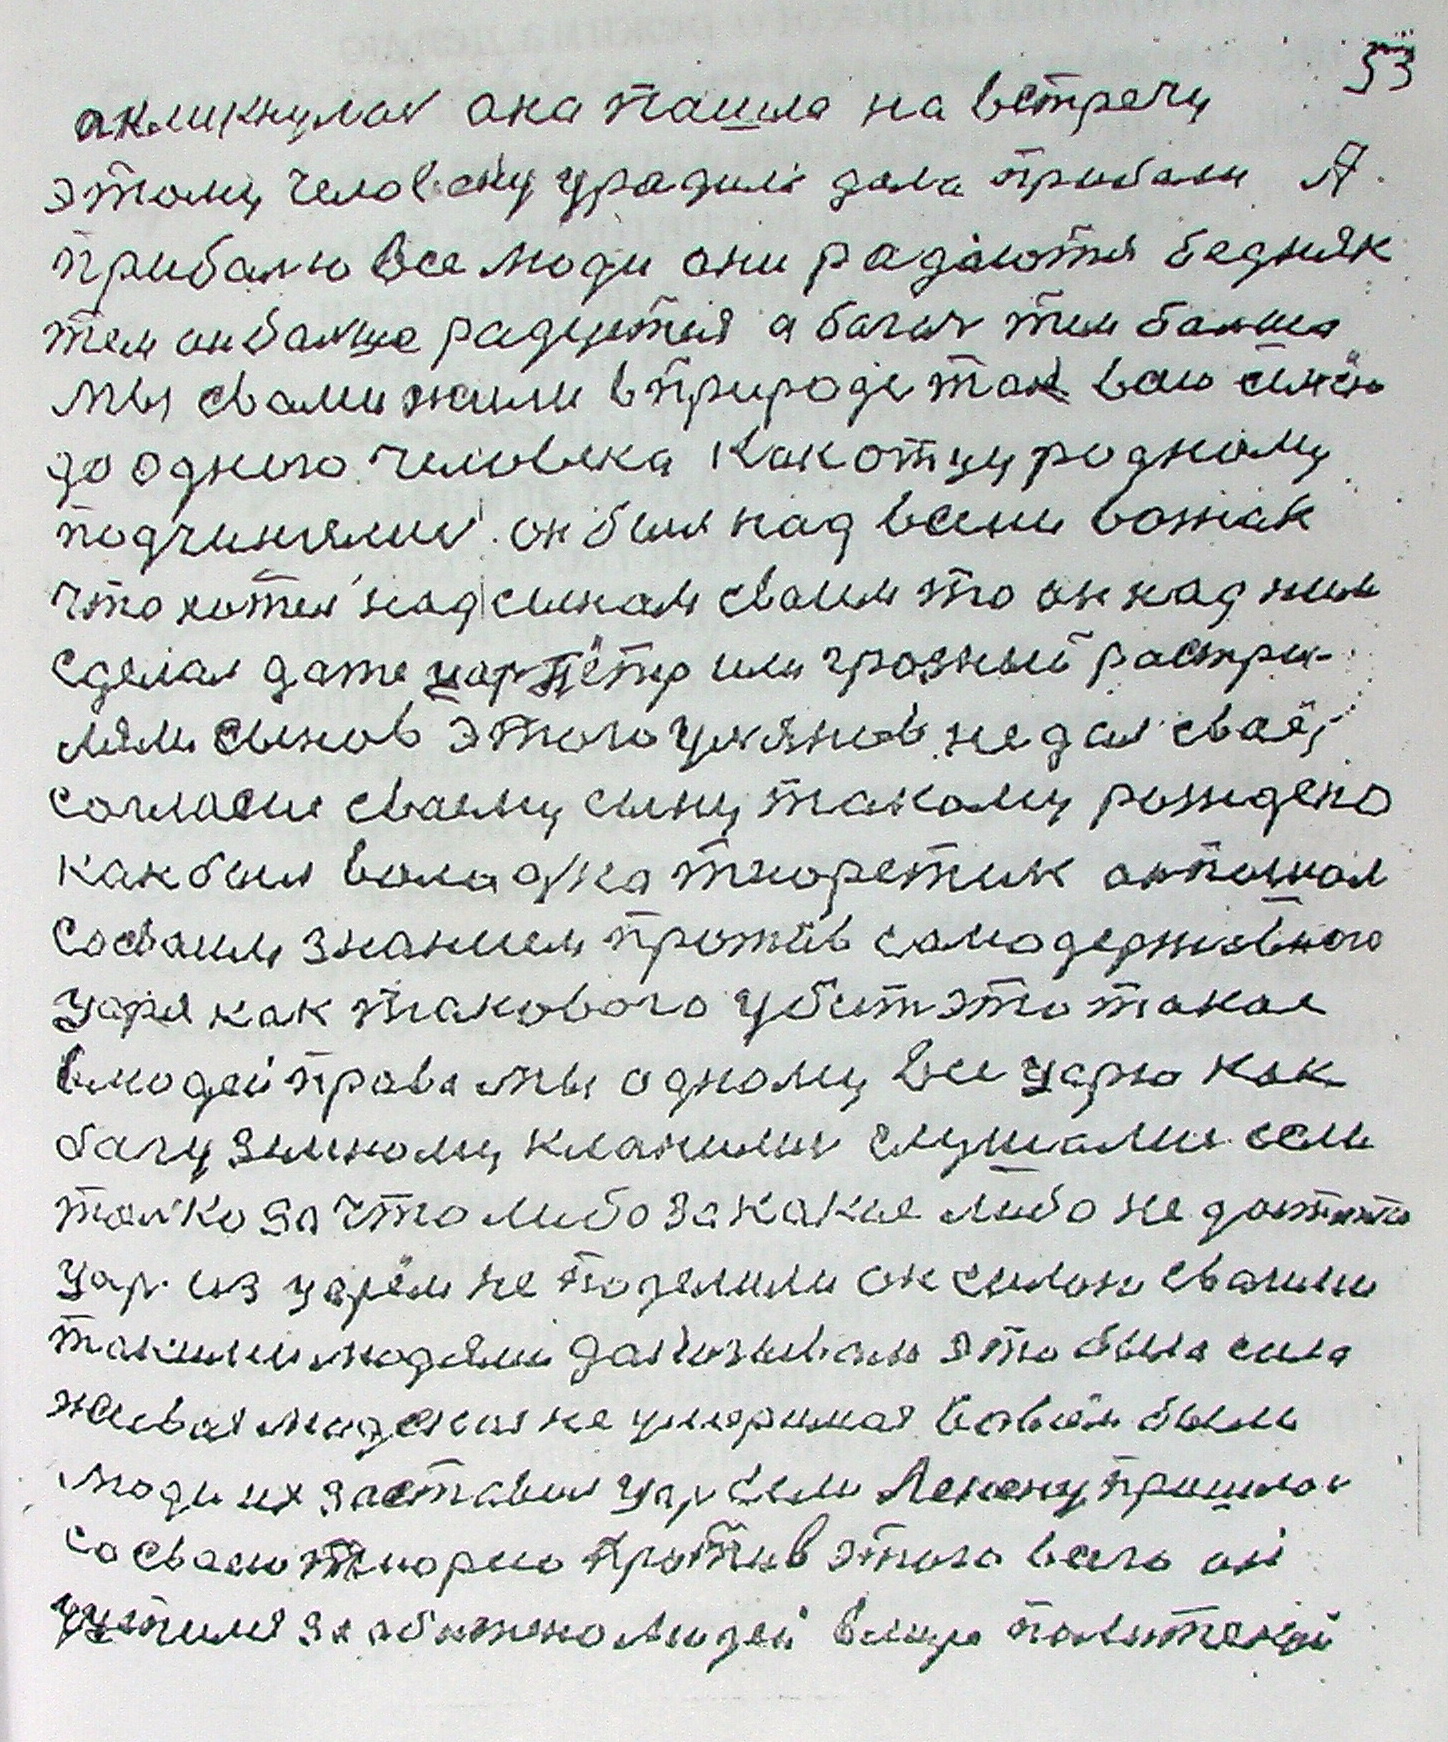 53
акликнулас она пашла на встречу
этому человеку урадила дала прибали А
прибалю все люди они радяются бедняк
тем он балше радуится а багач тем балша
мы свами жили вприроде так ваю
до одного человека как отцу родному
подчинялис он был над всеми вожак
что хотел над сынам сваим то он над ним
сделал дате цар Пётр или грозный растри-
ляли сынов этого Улянов не дал сваё,
согласие сваему сыну такому рождено
как был валодка тиоретик он пошол
сосваим знанием против самодержавного
царя как такового убит это такое
влюдей права мы одному все царю как
багу зимному кланилис слушалис если
толко за что либо за какие либо не
цар из царём не поделили он силои сваими
такими людями это была сила
живая людская не умаримая были
люди их заставил цар Ленену пришлос
сосваею тиориею против этого всего он
людей политекой